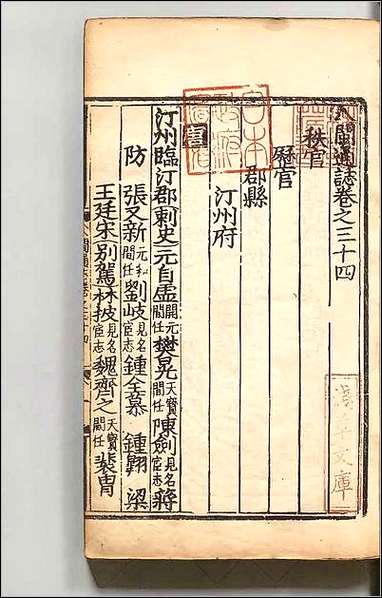 八閩通誌卷之三十四
秩官
歷官
郡縣
汀州府
唐
汀州臨汀郡刺史元自虛開元間任樊晃天寶間任陳劍見名宦志蔣
防
張又新元和間任劉岐見名宦志鍾全慕 鍾翺 梁
王廷宋別駕林披見名宦志魏齊之天寶間任裴胄
文庫